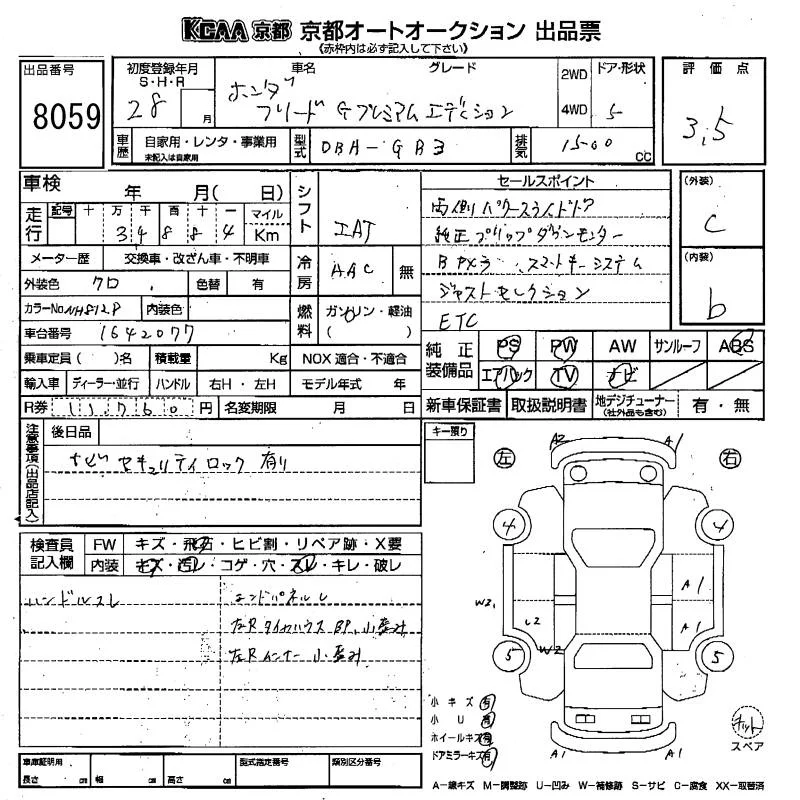 KCAA 京都 京都オートオークション 出品票
《赤枠内は必ず記入して下さい》
出品番号 8059
初度登録年月 S・H・R 28 月
車名 グレード
ホンダ
フリード Gプレミアムエディション
2WD 4WD
ドア・形状 5
評価点 3,5
車歴 自家用・レンタ・事業用 未記入は自家用
型式 DBA-GB3
排気 1500 CC
車検 年 月( 日)
シフト IAT
走行 記号 十 万 千 百 十 一 マイル Km
3 4 8 8 4
メーター歴 交換車・改ざん車・不明車
冷房 AAC 無
外装色 クロ 色替 有
カラーNo NH812P 内装色
燃料 ガソリン・軽油 ( )
車台番号 1642077
乗車定員( )名 積載量 Kg NOX適合・不適合
輸入車 ディーラー・並行 ハンドル 右H・左H モデル年式 年
R券 11760円 名変期限 月 日
セールスポイント
両側パワースライドドア
純正フリップダウンモニター
Bカメラ スマートキーシステム
ジャストセレクション
ETC
(外装) C
(内装) b
純正装備品 PS PW AW サンルーフ ABS
エアバック TV ナビ
新車保証書 取扱説明書 地デジチューナー(社外品も含む) 有・無
注意事項(出品店記入)
後日品
ナビ セキュリティロック 有り
キー預り
検査員記入欄
FW キズ・飛石・ヒビ割・リペア跡・X要
内装 キズ・汚レ・コゲ・穴・スレ・キレ・破レ
ハンドルスレ
エンドパネル U
左RタイヤハウスBP、小歪み
左Rインナー小歪み
左 右
A2 A1
4 4
W2 U2 W2 A1 A1
5 5
A1 A1
小キズ 有
小U 有
ホイールキズ 有
ドアミラーキズ 有
キット
スペア
車庫証明用 長さ cm 幅 cm 高さ cm
型式指定番号
類別区分番号
A-線キズ M-調整跡 U-凹み W-補修跡 S-サビ C-腐食 XX-取替済